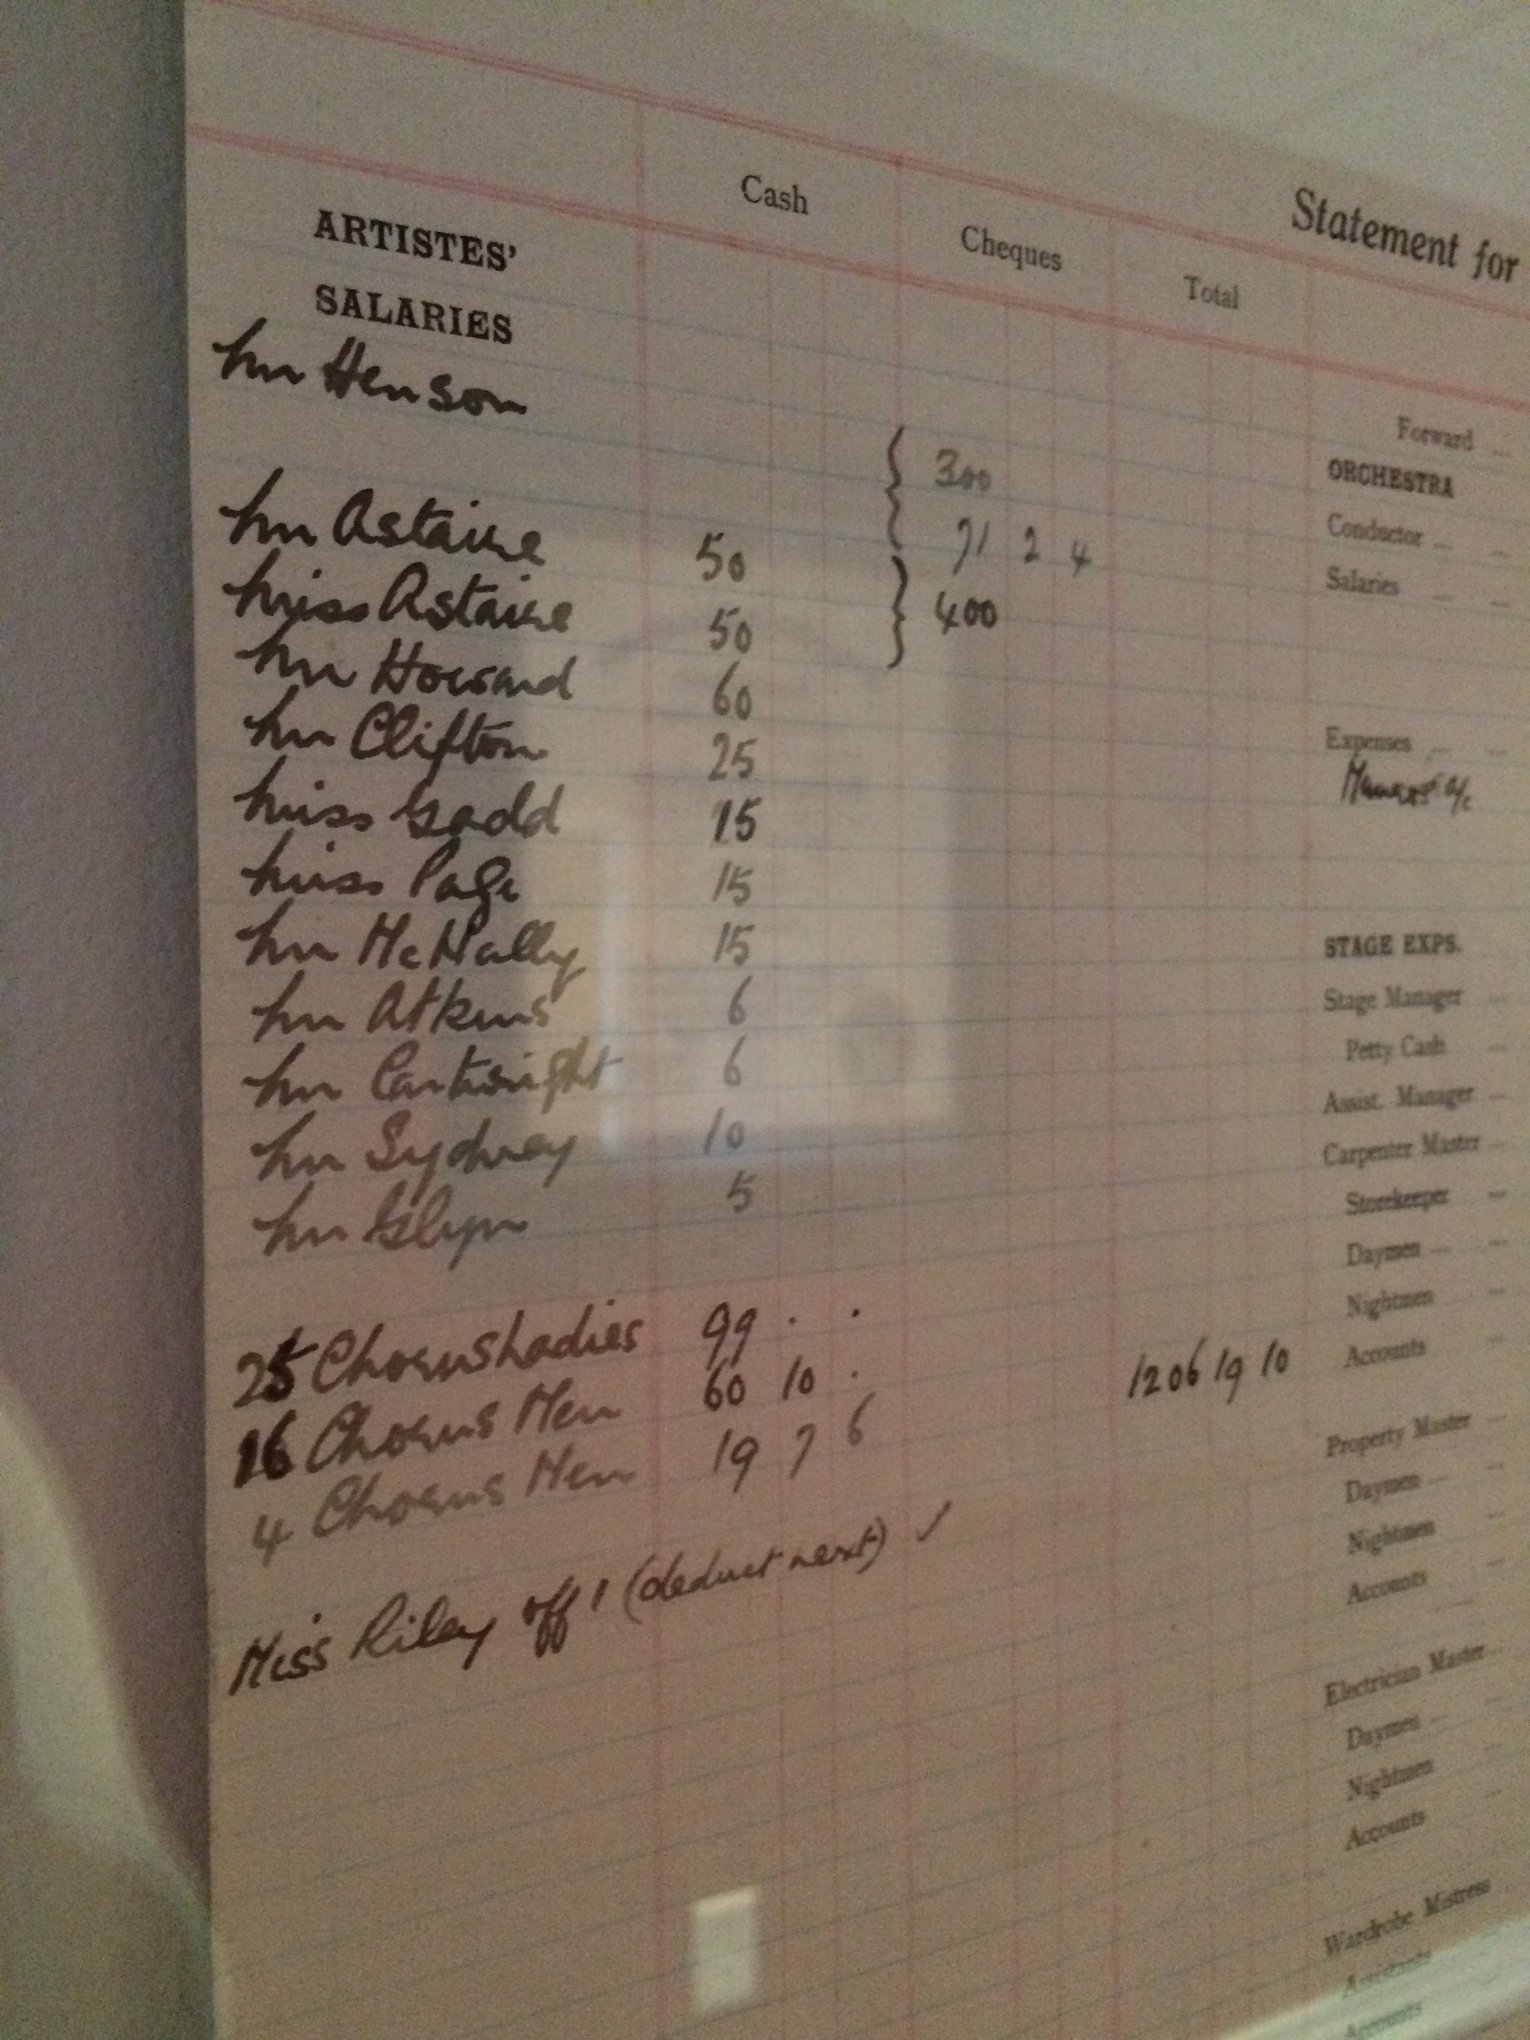 Statement for
Cash Cheques Total
ARTISTES'
SALARIES
Mr Henson
300
Mr Astaire 50 71 2 4
Miss Astaire 50 400
Mr Howard 60
Mr Clifton 25
Miss Gadd 15
Miss Page 15
Mr McNally 15
Mr Atkins 6
Mr Cartwright 6
Mr Sydney 10
Mr Glyn 5
25 Chorus Ladies 99 . .
16 Chorus Men 60 10 . 1206 19 10
4 Chorus Men 19 7 6
Miss Riley off 1 (deduct next) ✓
Forward
ORCHESTRA
Conductor
Salaries
Expenses
a/c
STAGE EXPS.
Stage Manager
Petty Cash
Assist. Manager
Carpenter Master
Storekeeper
Daymen
Nightmen
Accounts
Property Master
Daymen
Nightmen
Accounts
Electrician Master
Daymen
Nightmen
Accounts
Wardrobe Mistress
Assistants
Accounts